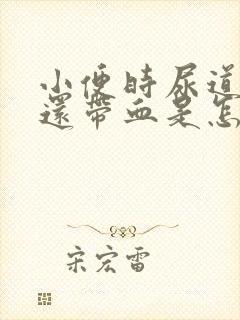 小便時尿道
還帶血是怎
宋宏雷